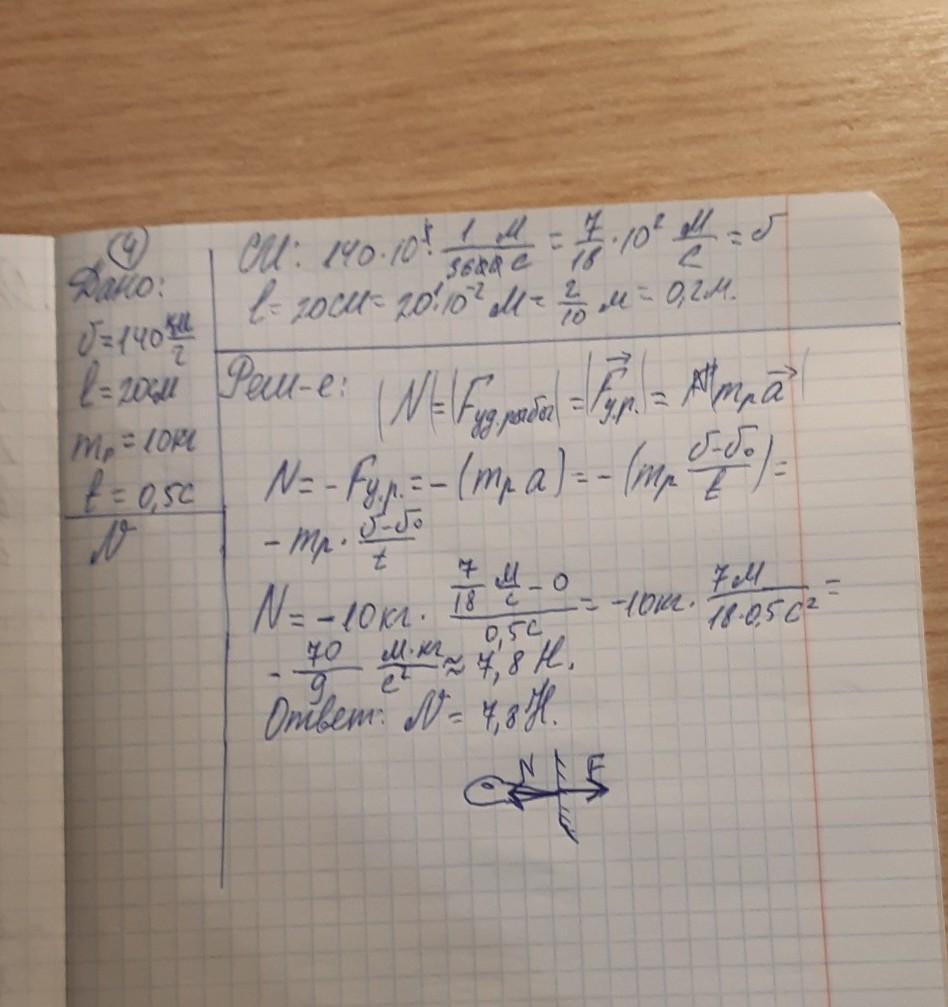 (4)
Дано:
υ=140 км/ч
l=20см
mр=10кг
t=0,5с
N
СИ: 140·10³·1/3600 м/с = 7/18·10² м/с = υ
l=20см=20·10⁻² м=2/10 м=0,2м.
Реш-е: |N|=|Fуд.рыбы|=|F⃗у.р.|=|mр a⃗|
N=-Fу.р.=-(mр a)=-(mр (υ-υ₀)/t)=
-mр·(υ-υ₀)/t
N=-10кг·(7/18 м/с - 0)/0,5с=-10кг·7м/(18·0,5с²)=
-70/9 м·кг/с² ≈ 7,8 Н.
Ответ: N=7,8Н.
N F